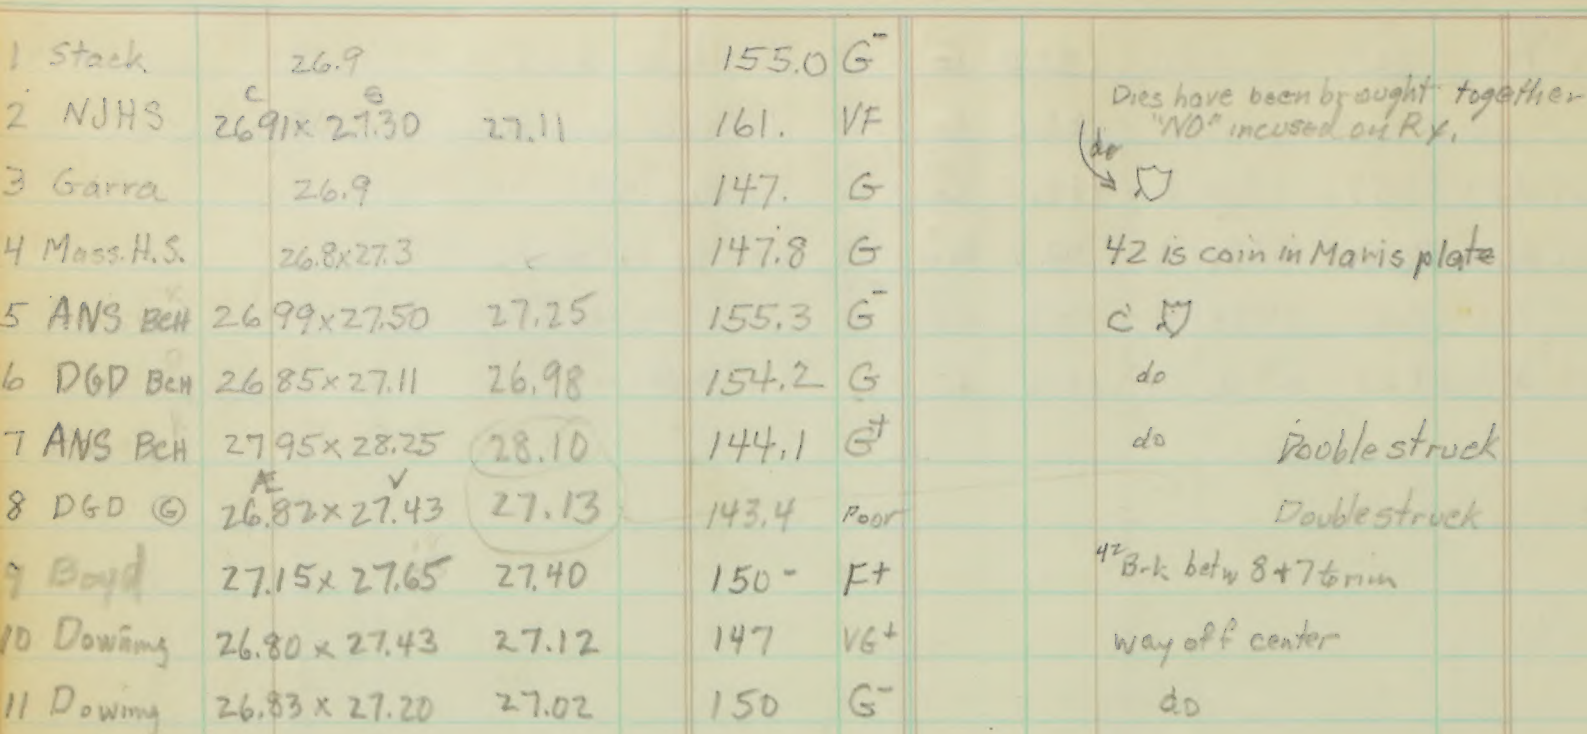 1 Stack 26.9 155.0 G-
Dies have been brought together
C S
2 NJHS 26.91 x 27.30 27.11 161. VF "NO" incused on Rx.
do
3 Garra 26.9 147. G
4 Mass. H.S. 26.8 x 27.3 147.8 G 42 is coin in Maris plate
5 ANS BCH 26.99 x 27.50 27.25 155.3 G- C
6 DGD BCH 26.85 x 27.11 26.98 154.2 G do
7 ANS BCH 27.95 x 28.25 28.10 144.1 G+ do Double struck
Æ V
8 DGD G 26.82 x 27.43 27.13 143.4 Poor Doublestruck
9 Boyd 27.15 x 27.65 27.40 150- F+ 42 Brk betw 8+7 to rim
10 Downing 26.80 x 27.43 27.12 147 VG+ way off center
11 Dowing 26.83 x 27.20 27.02 150 G- do